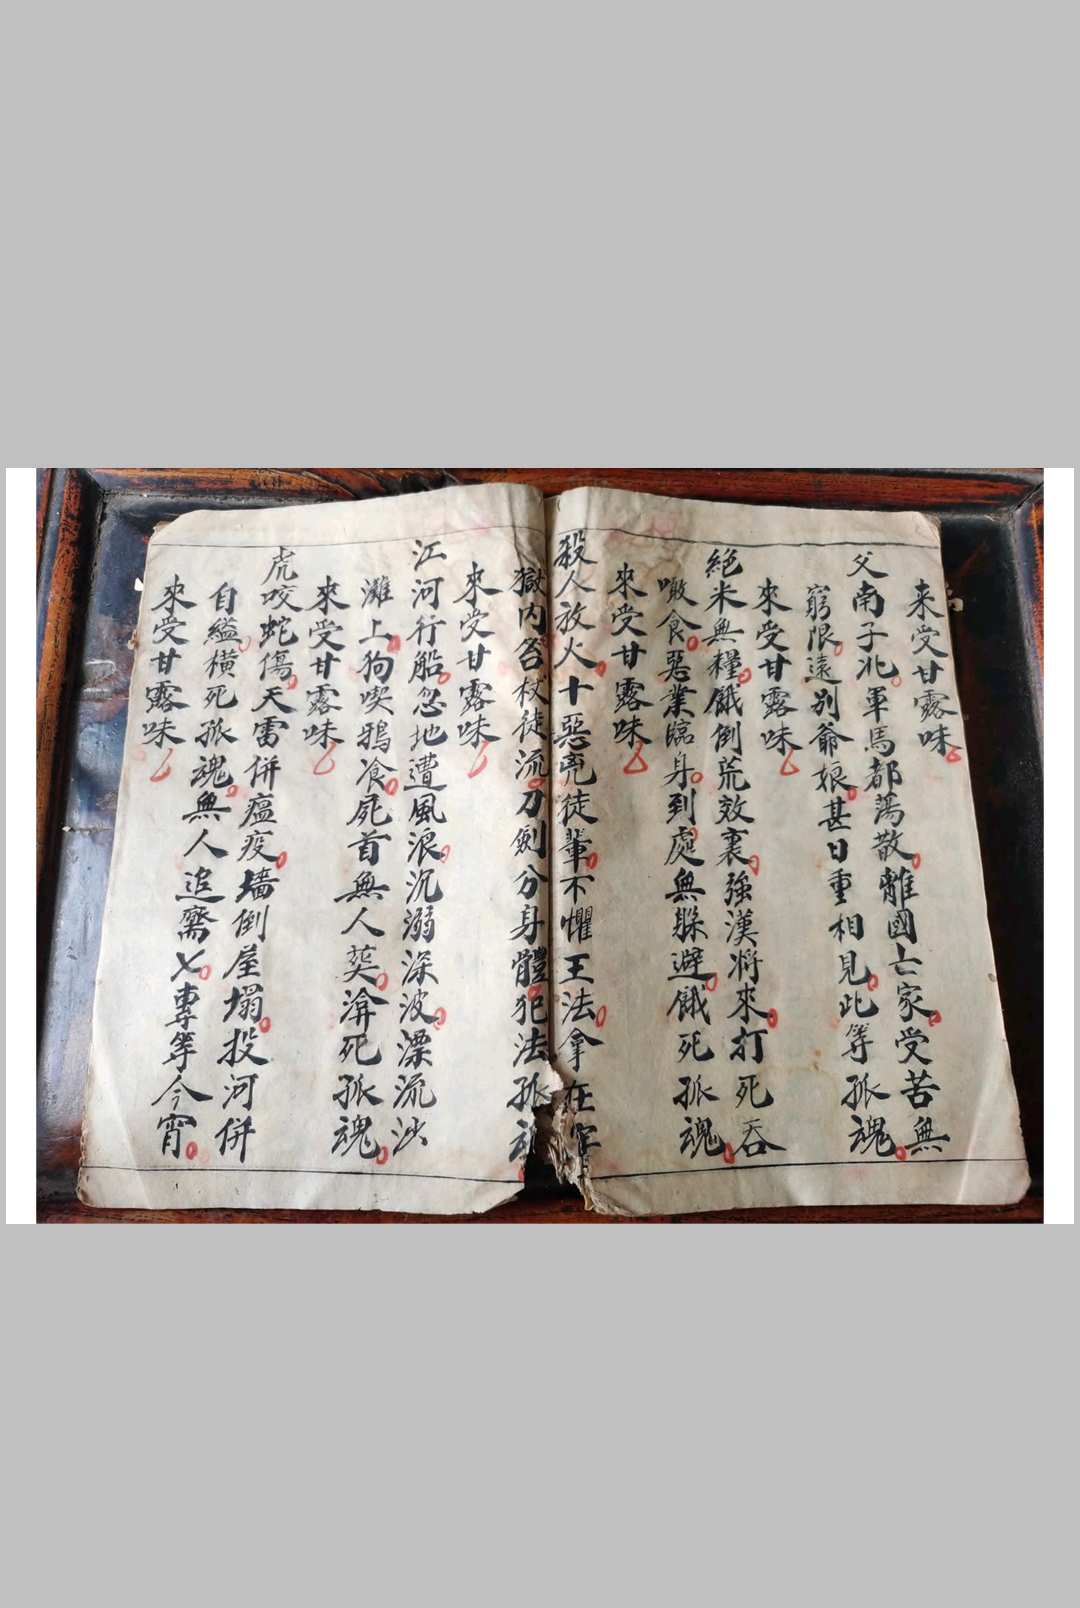 来受甘露味
父南子兆軍馬都蕩散離國亡家受苦無
窮限遠别爺娘甚日重相見此等孤魂
來受甘露味
絶米無糧餓倒荒效裏強漢将來打死吞
噉食惡業臨身到處無躲避餓死孤魂
來受甘露味
殺人放火十惡兇徒輩不懼王法拿在牢
獄内笞杖徒流刀劍分身體犯法孤魂
來受甘露味
江河行船忽地遭風浪沉溺深波漂流沙
灘上狗喫鴉飡屍首無人葬渰死孤魂
來受甘露味
虎咬蛇傷天雷併瘟疫墻倒屋塌投河併
自縊橫死孤魂無人追齋七專等今宵
來受甘露味